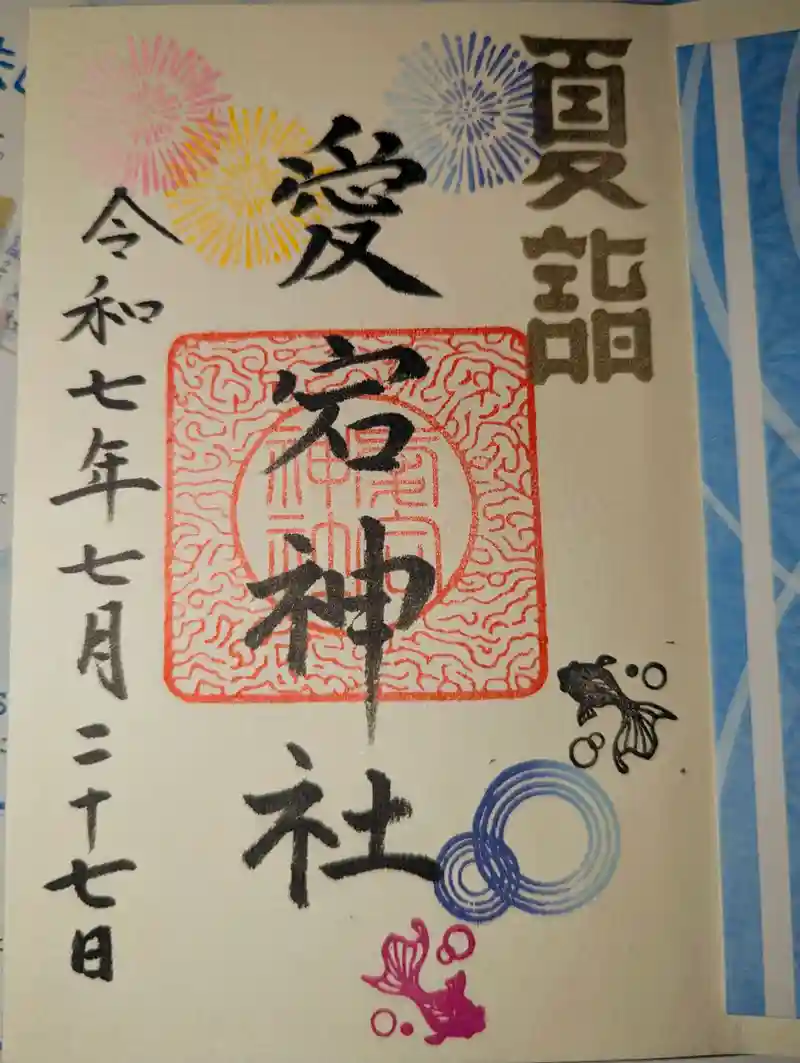 夏詣
愛宕神社
愛宕
神社
令和七年七月二十七日